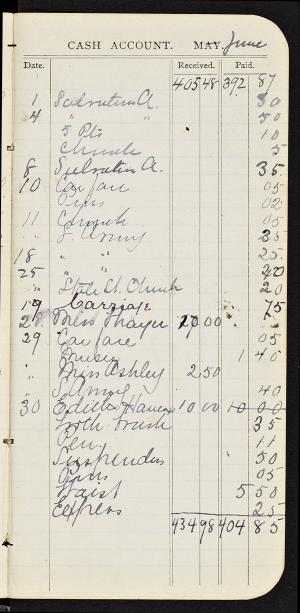 CASH ACCOUNT. MAY. June
Date. Received. Paid.
405 48 392 87
1 Salvation A. 50
4 " " 50
5 Pts 10
Church 5
8 Salvation A. 35
10 Car fare 05
Pins 02
11 Church 05
" S. Army 35
18 " " 25
25 " " 20
" State St. Church 20
19 Carriage 75
Miss Thayer 00
29 Car fare 05
" Music 1 40
" Miss Ashley 2 50
" S. Army 40
30 Edith 10 00 10 00
Tooth brush 35
Pen 11
Suspenders 50
Pins 05
Waist 5 50
Express 25
434 98 404 85